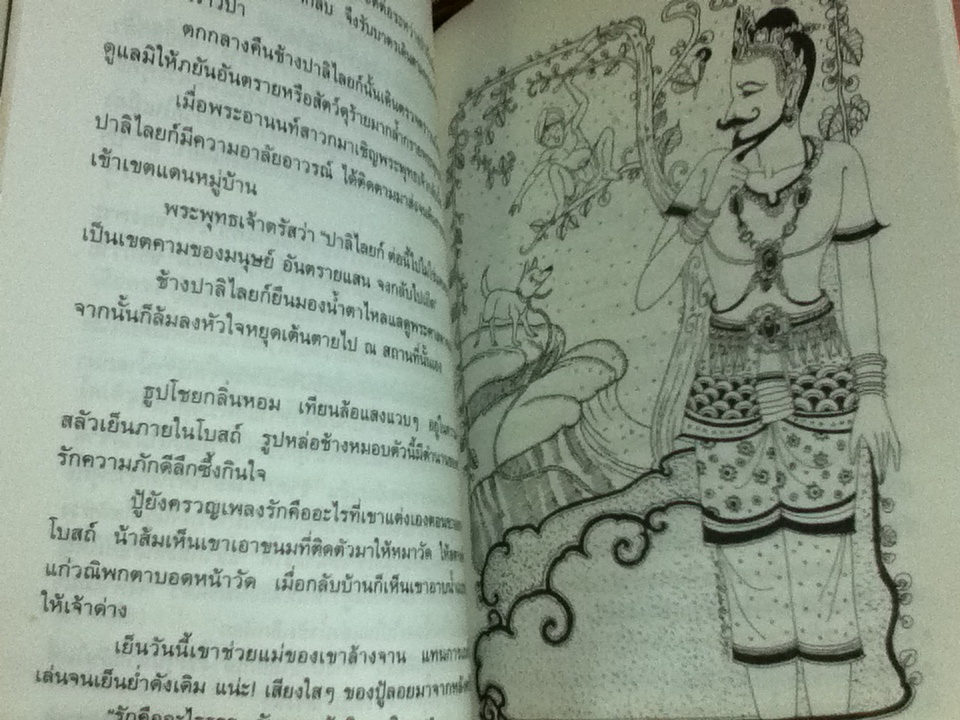 กลับ จึงรับบาตรเดิน
ตกกลางคืนช้างปาลิไลยก์นั้นเดินตรวจตรา
ดูแลมิให้ภยันอันตรายหรือสัตว์ดุร้ายมากล้ำกราย
เมื่อพระอานนท์สาวกมาเชิญพระพุทธเจ้า
ปาลิไลยก์มีความอาลัยอาวรณ์ ได้ติดตามมาส่ง
เข้าเขตแดนหมู่บ้าน
พระพุทธเจ้าตรัสว่า "ปาลิไลยก์ ต่อนี้ไป
เป็นเขตคามของมนุษย์ อันตรายแสน จงกลับไป
ช้างปาลิไลยก์ยืนมองน้ำตาไหลแลดูพระ
จากนั้นก็ล้มลงหัวใจหยุดเต้นตายไป ณ สถานที่นั้นเอง
ธูปโชยกลิ่นหอม เทียนล้อแสงแวบๆ อยู่ใน
สลัวเย็นภายในโบสถ์ รูปหล่อช้างหมอบตัวนี้มีตำนาน
รักความภักดีลึกซึ้งกินใจ
ปู้ยังครวญเพลงรักคืออะไรที่เขาแต่งเองตอน
โบสถ์ น้าส้มเห็นเขาเอาขนมที่ติดตัวมาให้หมาวัด
แก่วณิพกตาบอดหน้าวัด เมื่อกลับบ้านก็เห็นเขาอาบน้ำ
ให้เจ้าด่าง
เย็นวันนี้เขาช่วยแม่ของเขาล้างจาน แทน
เล่นจนเย็นย่ำดังเดิม แน่ะ! เสียงใสๆ ของปู้ลอยมาจาก
"รักคืออะไร